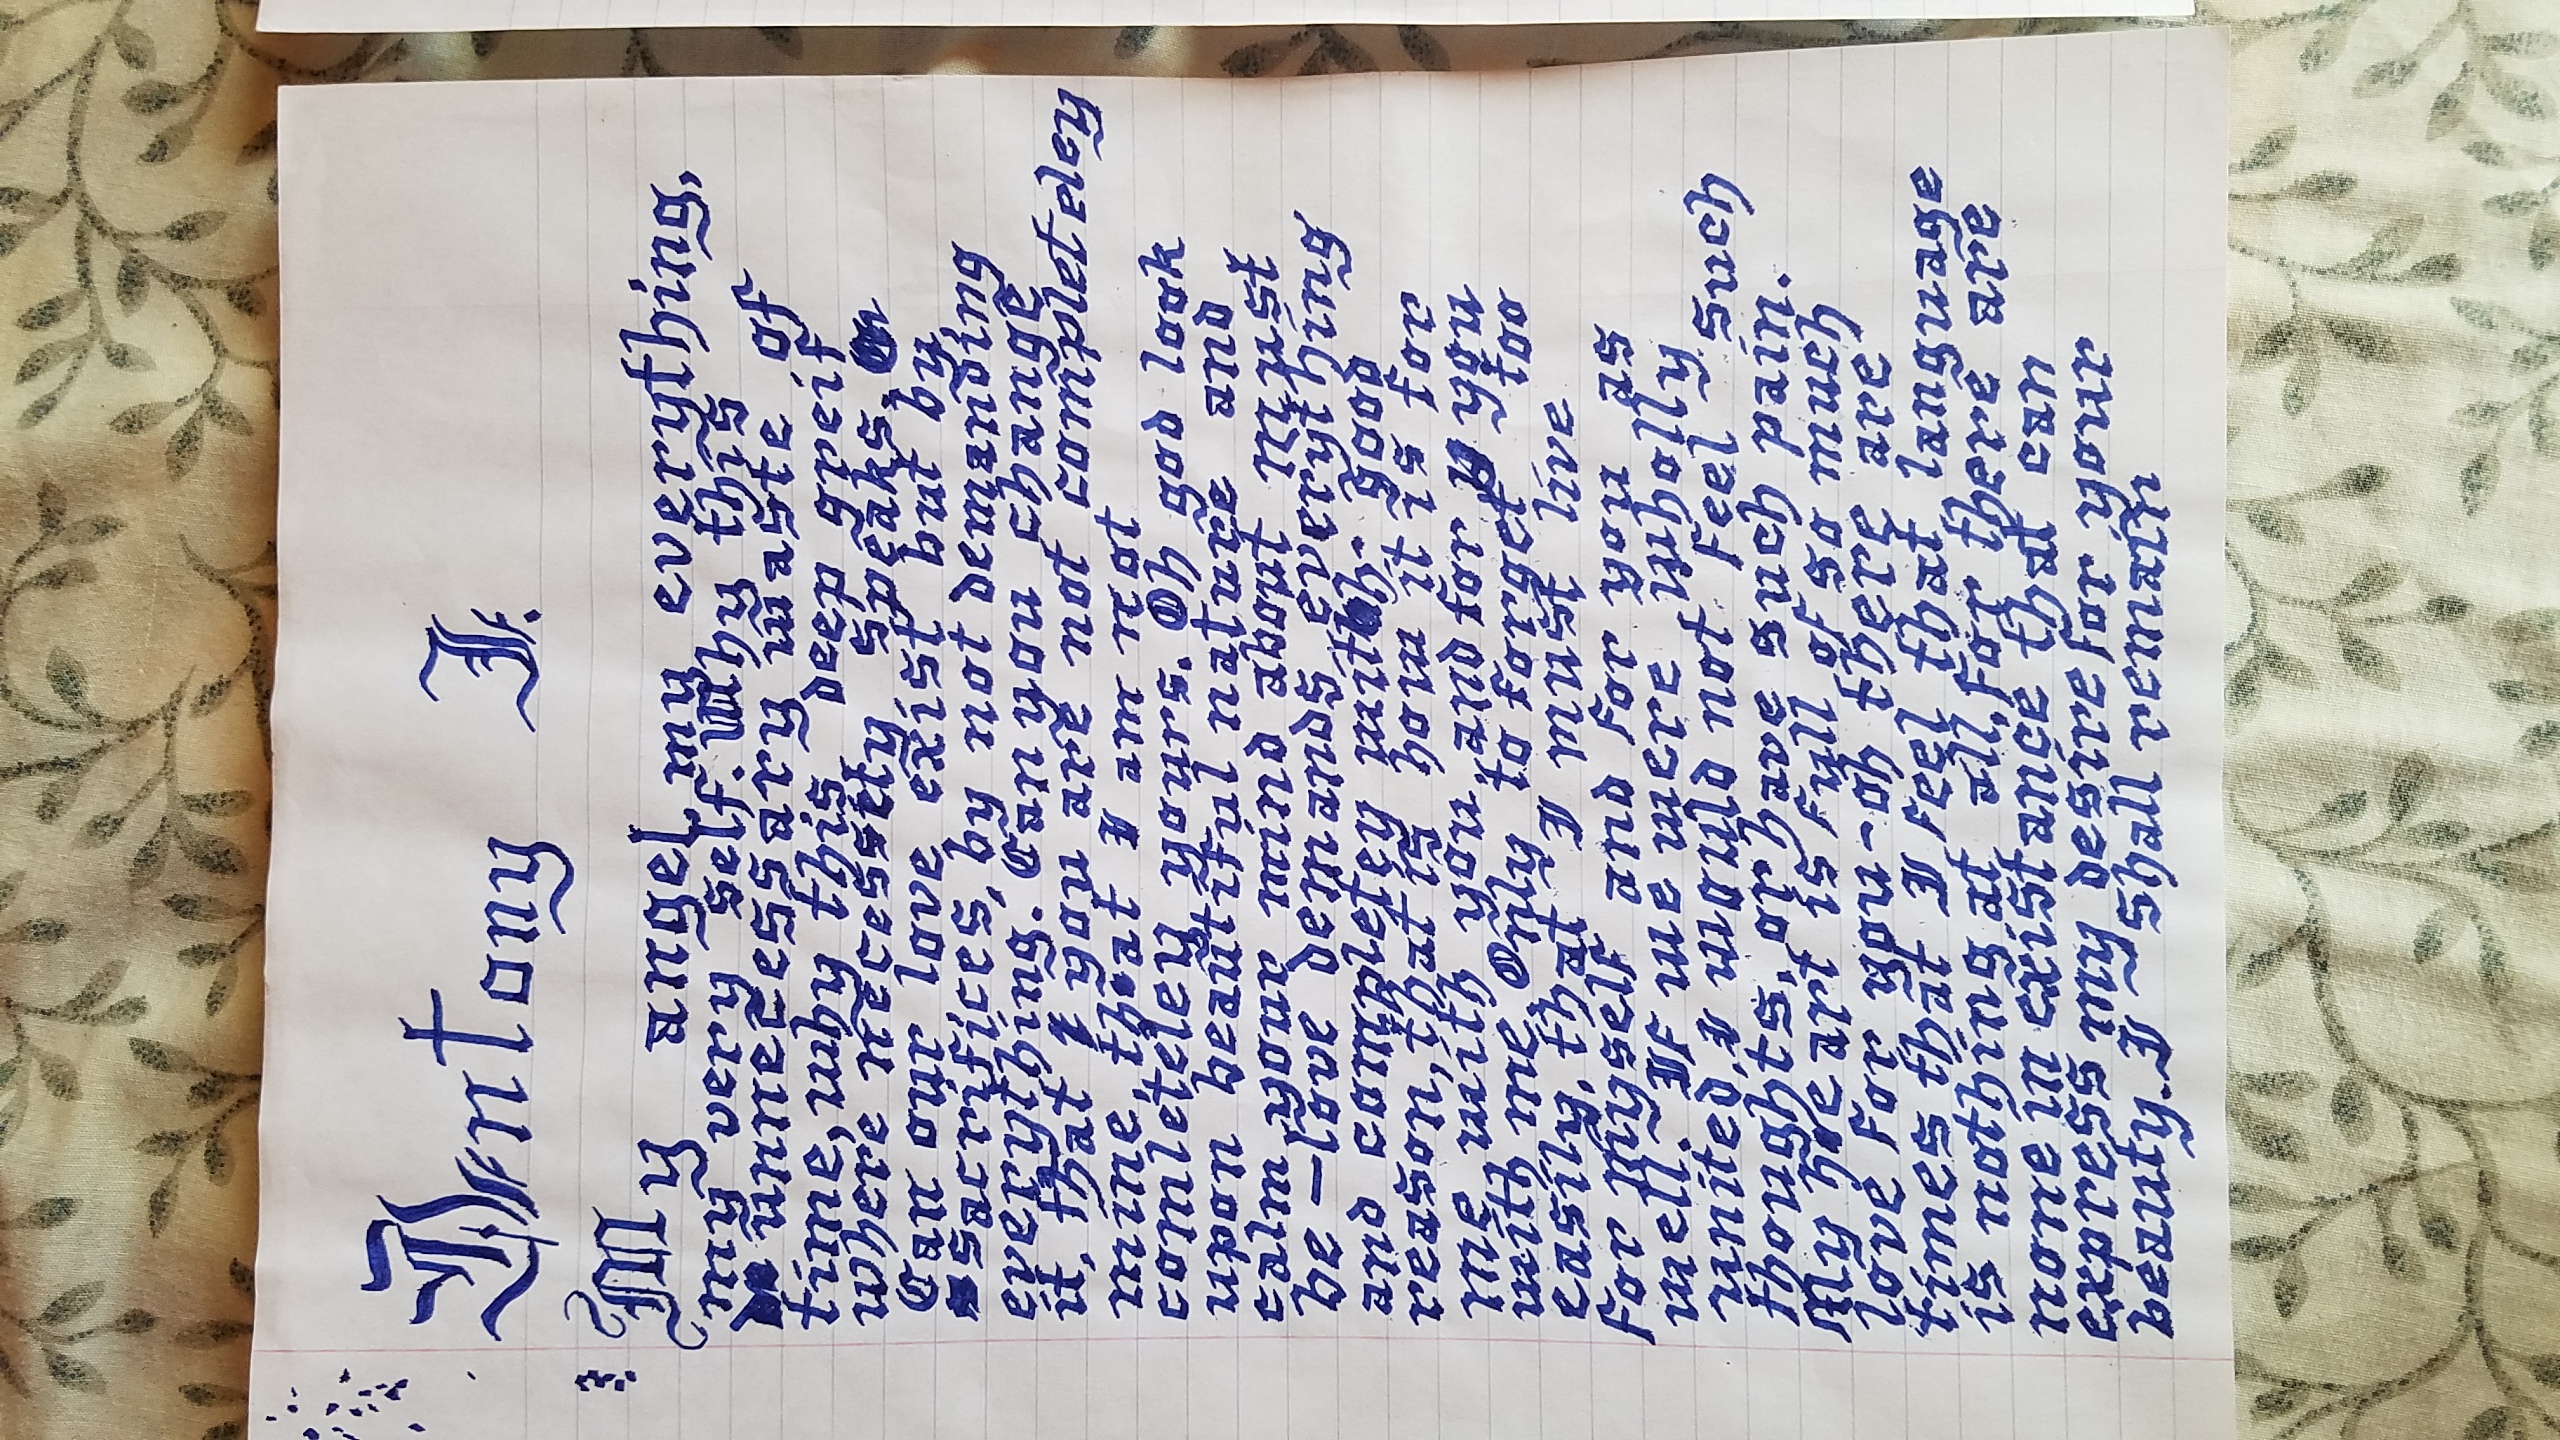 Antony J.
My angel, my everything,
my very self. Why this
unnecessary waste of
time, why this deep greif
where necessity speaks.
Can our love exist but by
sacrifices, by not demanding
everything. Can you change
it, that you are not completeley
mine, that I am not
comleteley yours. Oh god look
upon beautiful nature and
calm your mind about must
be - love demands everything
and completey with good
reason, that is how it is for
me with you, and for you
with me. Only to forget too
easily, that I must live
for myself and for you as
well. If we were wholly
united, I would not feel such
thoughts, or have such pain.
My heart is full of so much
love for you - oh there are
times that I feel that language
is nothing at all, for there are
none in existance that can
express my desire for your
beauty. I shall remain